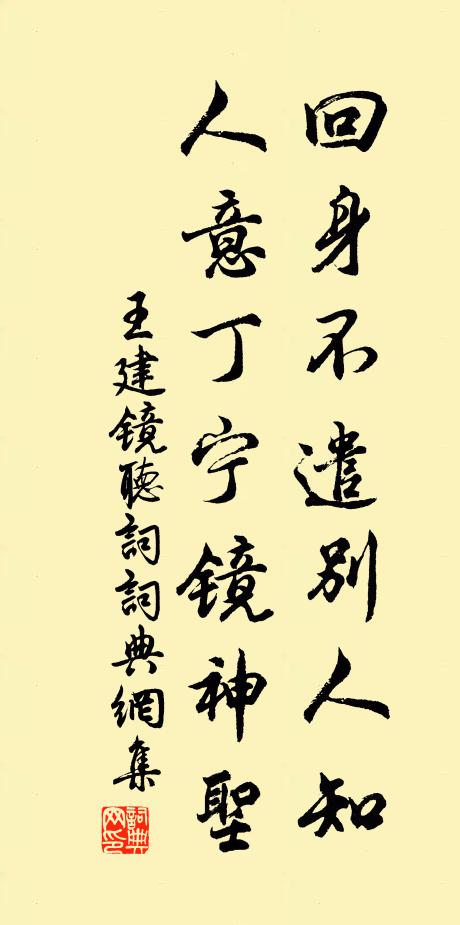 回身不遣别人知
人意丁宁镜神聖
王建镜聽詞詞典網集
詞典网印